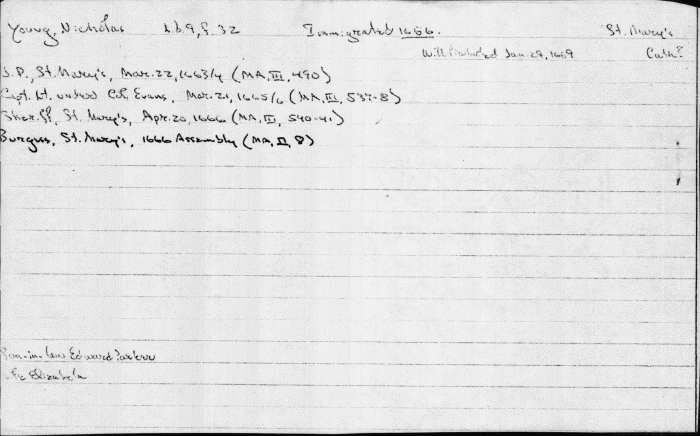 Young, Nicholas L.b.9, f. 32 Immigrated 1656. St. Mary's
Will Probated Jan. 29, 1669 Cath?
J.P., St. Mary's, Mar. 22, 1663/4 (MA, III, 490)
Capt. Lt. under Col. Evans, Mar. 21, 1665/6 (MA, III, 537-8)
Sheriff, St. Mary's, Apr. 20, 1666 (MA, III, 540-41)
Burgess, St. Mary's, 1666 Assembly (MA, II, 8)
-in-law Edward Parker
Elizabeth